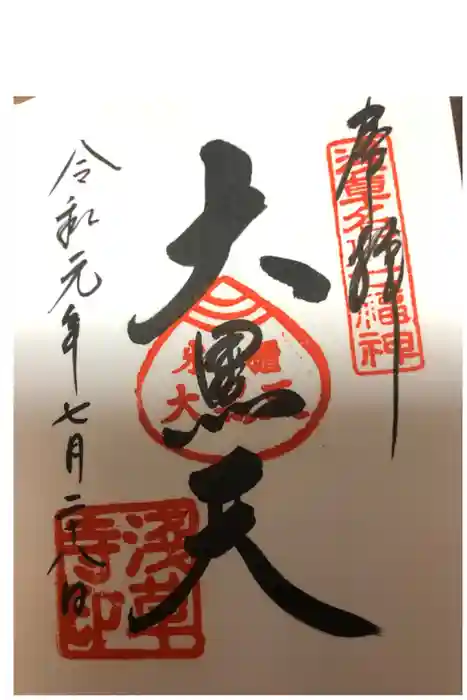 奉拝
浅草名所七福神
大黒天
令和元年七月二十八日
浅草寺印